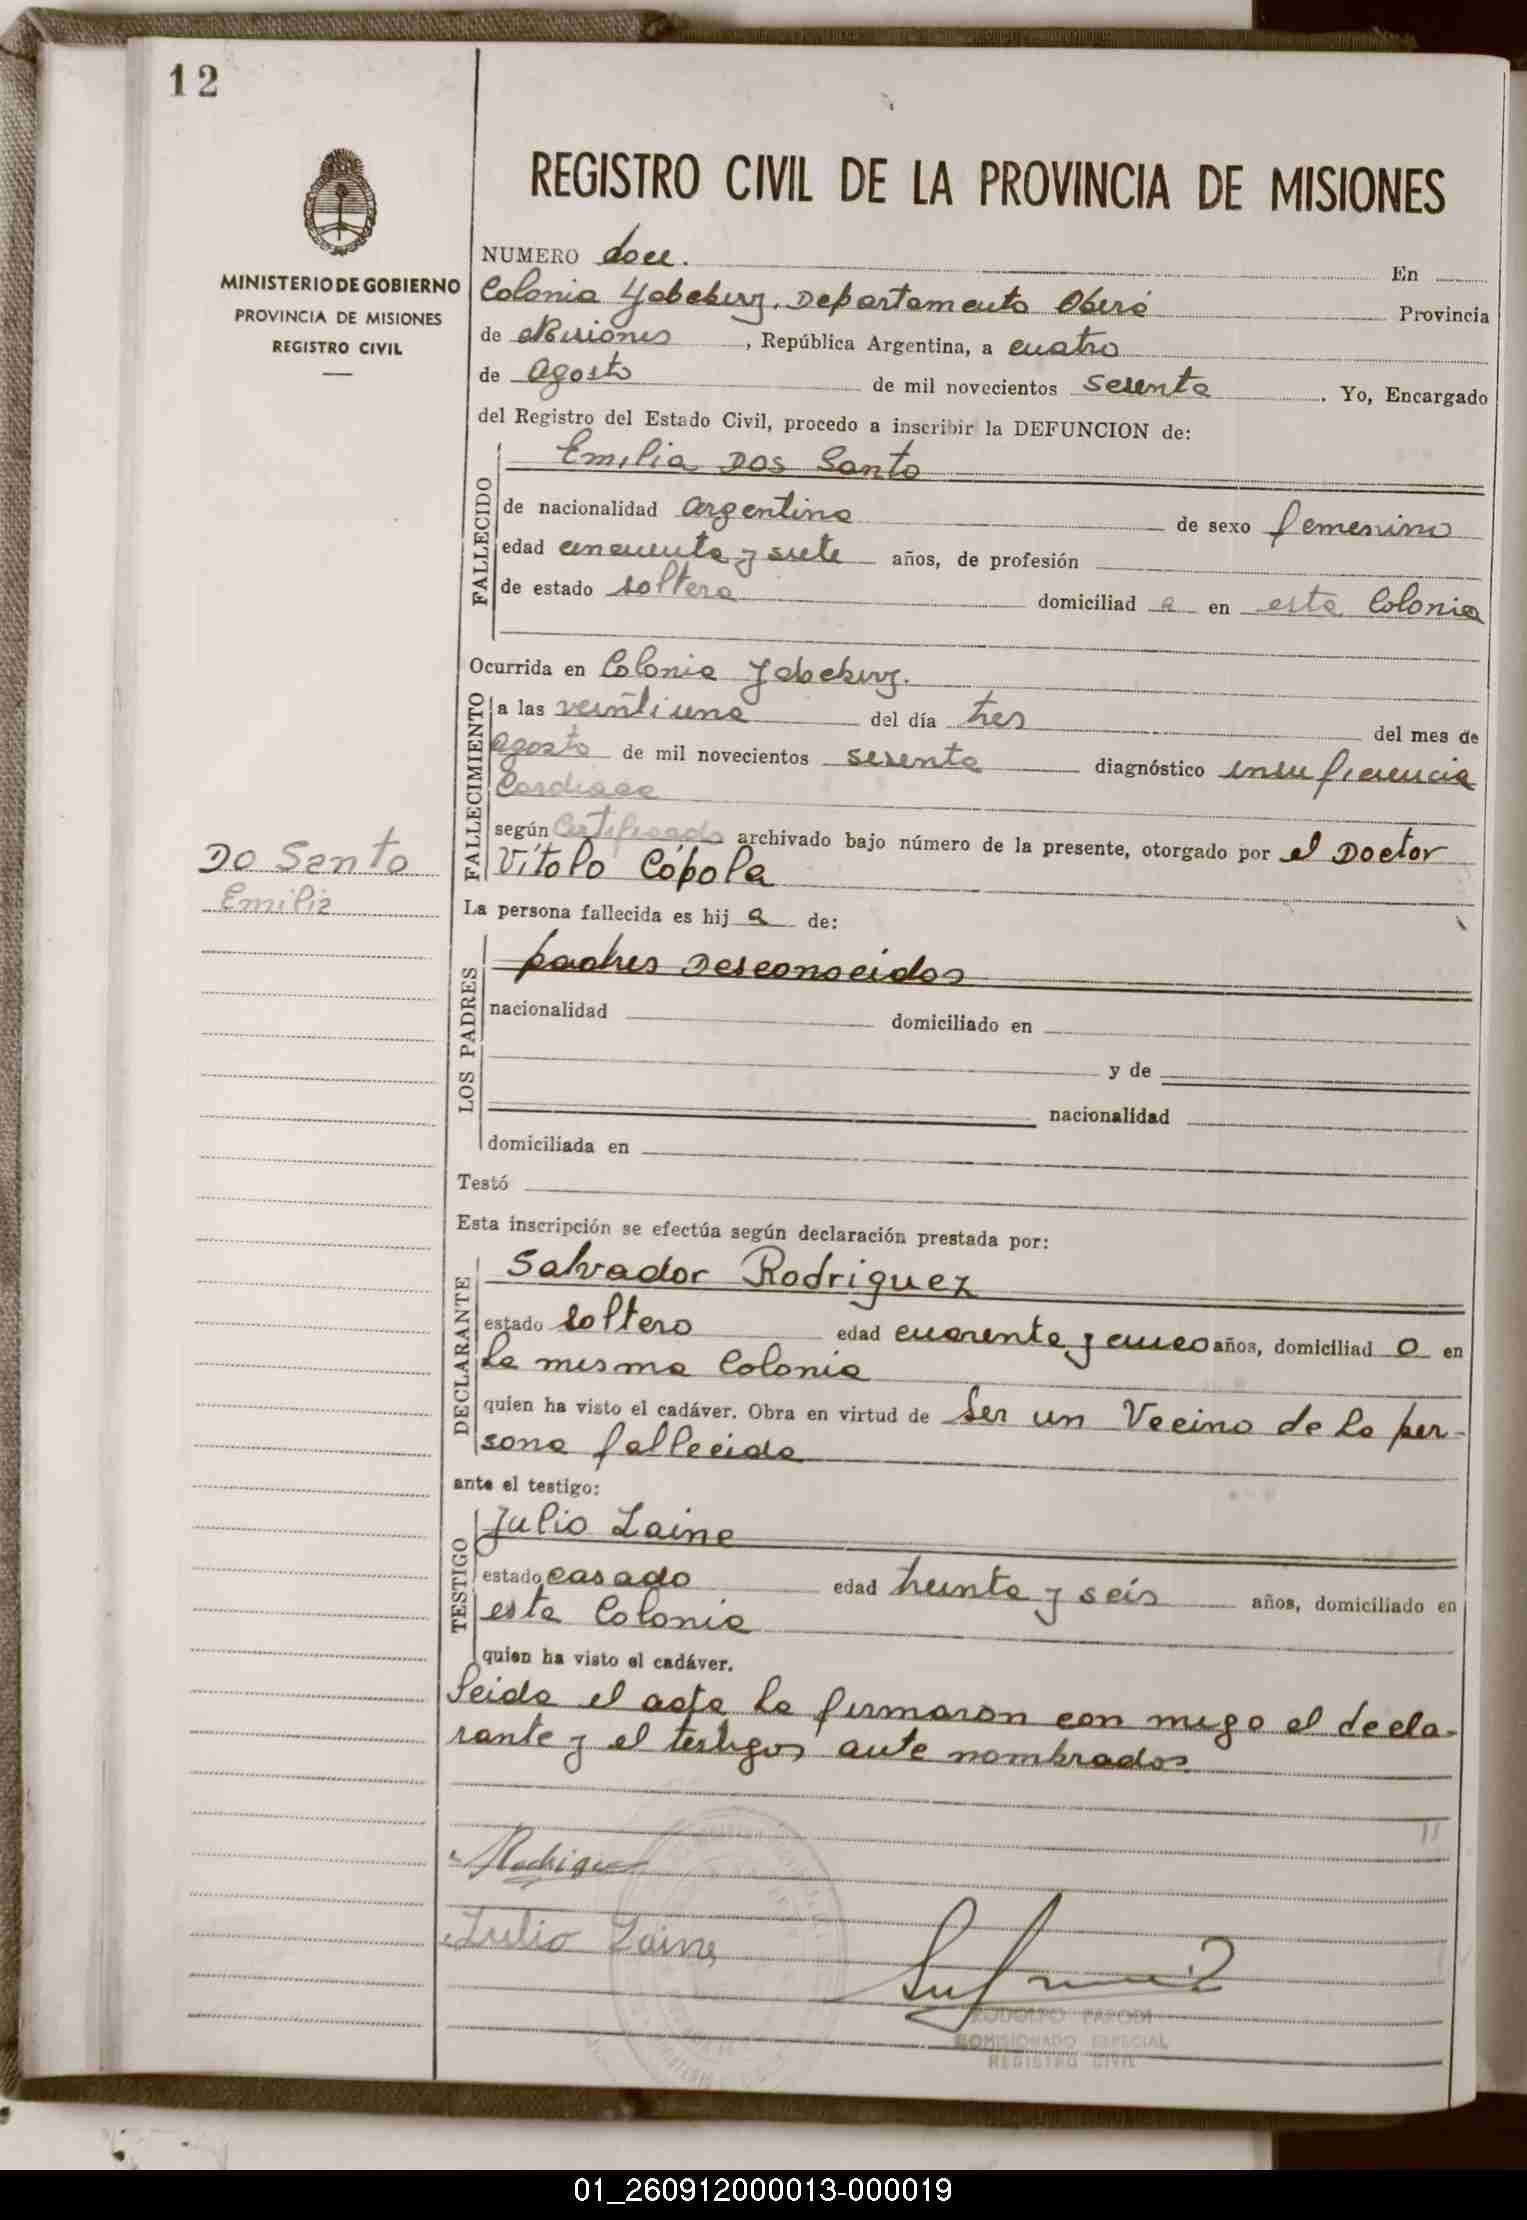 12
MINISTERIO DE GOBIERNO
PROVINCIA DE MISIONES
REGISTRO CIVIL
REGISTRO CIVIL DE LA PROVINCIA DE MISIONES
NUMERO doce. En
Colonia Yabebiry, Departamento Oberá Provincia
de Misiones, República Argentina, a cuatro
de Agosto de mil novecientos sesenta. Yo, Encargado
del Registro del Estado Civil, procedo a inscribir la DEFUNCION de:
FALLECIDO
Emilia Dos Santo
de nacionalidad argentina de sexo femenino
edad cincuenta y siete años, de profesión
de estado soltera domiciliad a en esta Colonia
Ocurrida en Colonia Yabebiry.
FALLECIMIENTO
a las veintiuna del día tres del mes de
Agosto de mil novecientos sesenta diagnóstico insuficiencia
Cardiaca
según Certificado archivado bajo número de la presente, otorgado por el Doctor
Vítolo Cópola
Do Santo
Emilia
La persona fallecida es hij a de:
LOS PADRES
padres desconocidos
nacionalidad domiciliado en
y de
nacionalidad
domiciliada en
Testó
Esta inscripción se efectúa según declaración prestada por:
DECLARANTE
Salvador Rodriguez
estado soltero edad cuarenta y cinco años, domiciliad o en
la misma Colonia
quien ha visto el cadáver. Obra en virtud de ser un Vecino de la per-
sona fallecida
ante el testigo:
TESTIGO
Julio Laine
estado casado edad treinta y seis años, domiciliado en
esta Colonia
quien ha visto el cadáver.
Leida el acta la firmaron con migo el decla-
rante y el testigos ante nombrados
Julio Laine
RODOLFO PARODI
COMISIONADO ESPECIAL
REGISTRO CIVIL
01_260912000013-000019